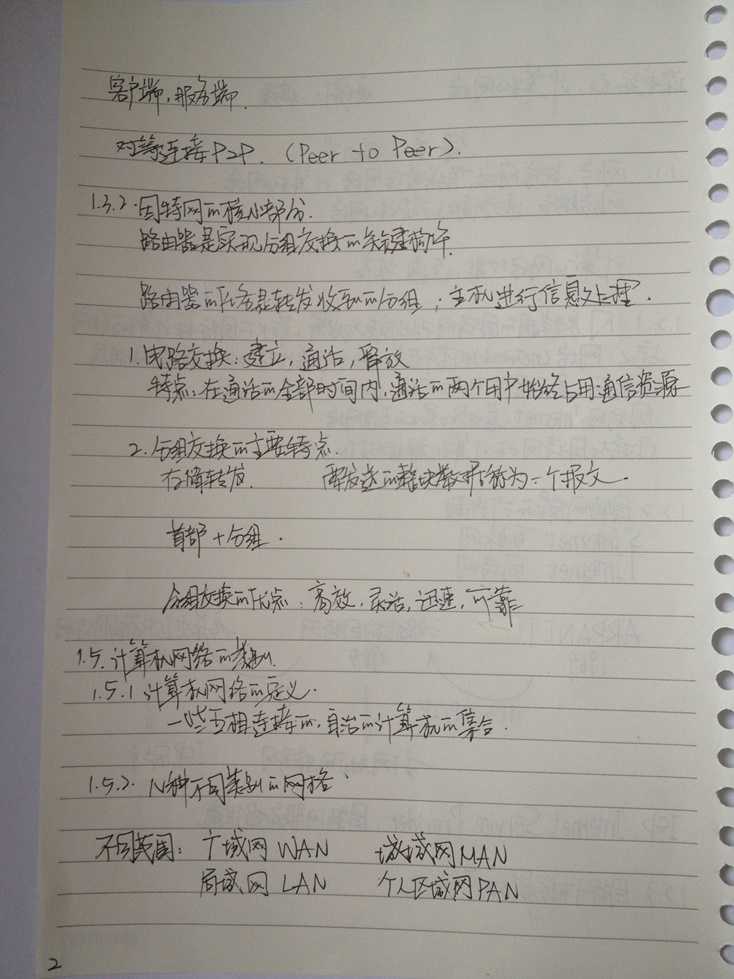 客户端，服务端.
对等连接P2P. (Peer to Peer).
1.3.2.因特网的核心部分.
路由器是实现分组交换的关键构件.
路由器的任务是转发收到的分组；主机进行信息处理.
1.电路交换：建立，通话，释放
特点：在通话的全部时间内，通话的两个用户始终占用通信资源
2.分组交换的主要特点.
存储转发. 要发送的整块数据称为一个报文.
首部+分组.
分组交换的优点：高效，灵活，迅速，可靠
1.5.计算机网络的类别.
1.5.1计算机网络的定义.
一些互相连接的，自治的计算机的集合.
1.5.2. N种不同类别的网络：
不同范围：广域网WAN 城域网MAN
局域网LAN 个人区域网PAN
2